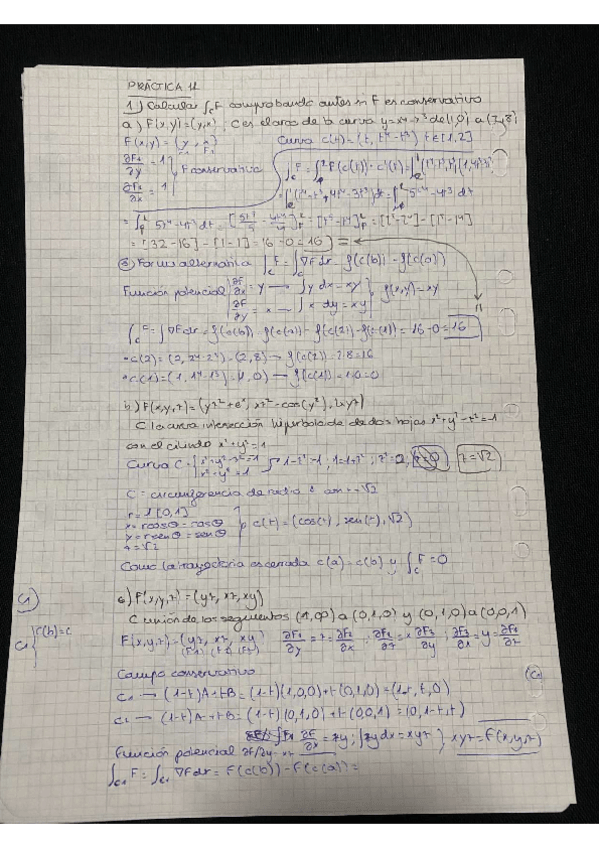 PRÁCTICA 12
1) Calcular ∫c F comprobando antes si F es conservativo
a) F(x,y)=(y,x), C es el arco de la curva y=x⁴-x³ de (1,0) a (2,8)
F(x,y)=(y,x) Curva c(t)=(t, t⁴-t³) t∈[1,2]
∂F1/∂y = 1
∂F2/∂x = 1 } F conservativo
= [32-16]-[1-1]=16-0=16
Forma alternativa ∫c F = ∫c ∇F dr = f(c(b))-f(c(a))
Función potencial ∂F/∂x = y → ∫y dx = xy
∂F/∂y = x → ∫x dy = xy } f(x,y)=xy
∫c F = ∫∇F dr = f(c(b))-f(c(a))=f(c(2))-f(c(1))=16-0=16
•c(2)=(2, 2⁴-2³)=(2,8) → f(c(2))=2·8=16
•c(1)=(1, 1⁴-1³)=(1,0) → f(c(1))=1·0=0
b) F(x,y,z)=(yz²+eˣ, xz²-cos(y²), 2xyz)
C la curva intersección hiperboloide de dos hojas x²+y²-z²=-1
con el cilindro x²+y²=1
Curva C={ x²+y²-z²=-1
x²+y²=1 1-z²=-1, 1+1=z², z²=2, z=√2
C = circunferencia de radio 1 z=√2
r=1 [0,1]
x=rcosθ=cosθ
y=rsenθ=senθ
z=√2 } c(t)=(cos(t), sen(t), √2)
Como la trayectoria es cerrada c(a)=c(b) y ∫c F=0
c) F(x,y,z)=(yz, xz, xy)
C unión de los segmentos (1,0,0) a (0,1,0) y (0,1,0) a (0,0,1)
F(x,y,z)=(yz, xz, xy) ∂F1/∂y=z=∂F2/∂x; ∂F2/∂z=x=∂F3/∂y; ∂F3/∂x=y=∂F1/∂z
(F1) (F2) (F3)
Campo conservativo
C1 → (1-t)A+tB=(1-t)(1,0,0)+t(0,1,0)=(1-t,t,0)
C2 → (1-t)A+tB=(1-t)(0,1,0)+t(0,0,1)=(0,1-t,t)
∂F/∂x=zy; ∫zy dx=xyz } xyz=F(x,y,z)
Función potencial ∂F/∂y=xz
∫c1 F=∫c1 ∇F dr=F(c(b))-F(c(a))=